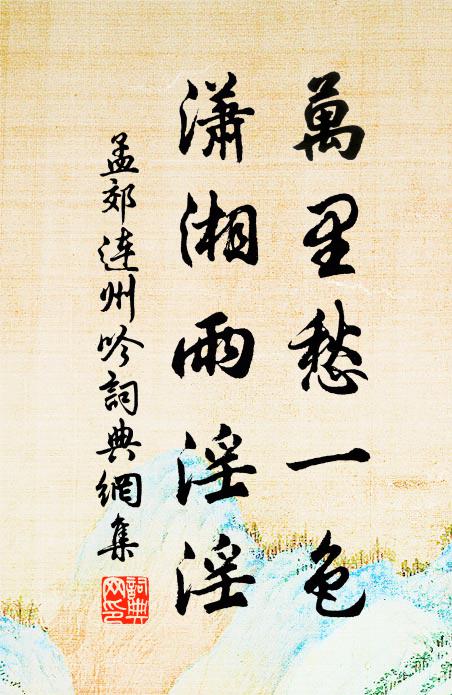 萬里愁一色
瀟湘雨淫淫
孟郊連州吟詞典網集
詞典
网印